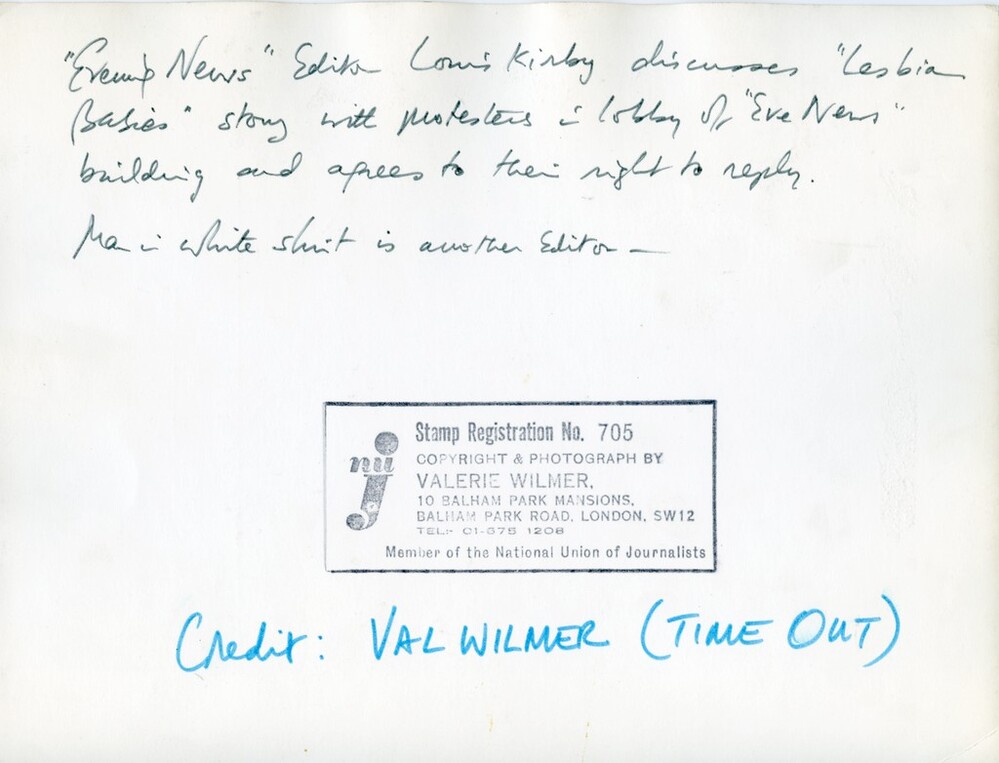 "Evening News" Editor Louis Kirby discusses "Lesbian
Babies" story with protesters in lobby of "Eve News"
building and agrees to their right to reply.
Man in white shirt is another Editor —
nuj
Stamp Registration No. 705
COPYRIGHT & PHOTOGRAPH BY
VALERIE WILMER,
10 BALHAM PARK MANSIONS,
BALHAM PARK ROAD, LONDON, SW12
TEL:- 01-675 1208
Member of the National Union of Journalists
Credit: VAL WILMER (TIME OUT)